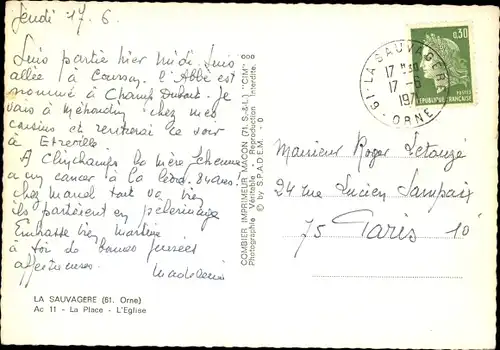 Jeudi 17.6.
Suis partie hier midi. Suis
allée à l'Abbé est
nommé à Champ Dubost. Je
vais à chez mes
cousins et rentrerai ce soir
à
A Clinchamps la mère
a un cancer à la 84 ans.
chez Marcel tout va bien
ils partiront en pèlerinage
Embrasse bien Martine
à toi de bonnes pensées
affectueuses.
Madeleine
LA SAUVAGERE (61. Orne)
Ac 11 - La Place - L'Eglise
COMBIER IMPRIMEUR MACON (71.S.-&-L.) "CIM"
Photographie Véritable - Reproduction Interdite
© by S.P.A.D.E.M.
61-LA SAUVAGERE
17-6
ORNE
0,30
POSTES
REPUBLIQUE FRANCAISE
Monsieur Roger Letouzé
24 rue Lucien Sampaix
75 Paris 10